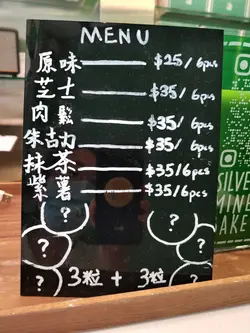 MENU
原味 $25/6pcs
芝士 $35/6pcs
肉鬆 $35/6pcs
朱古力 $35/6pcs
抹茶 $35/6pcs
紫薯 $35/6pcs
? ?
? ?
3粒 + 3粒
SILVER
MINE
BAKE